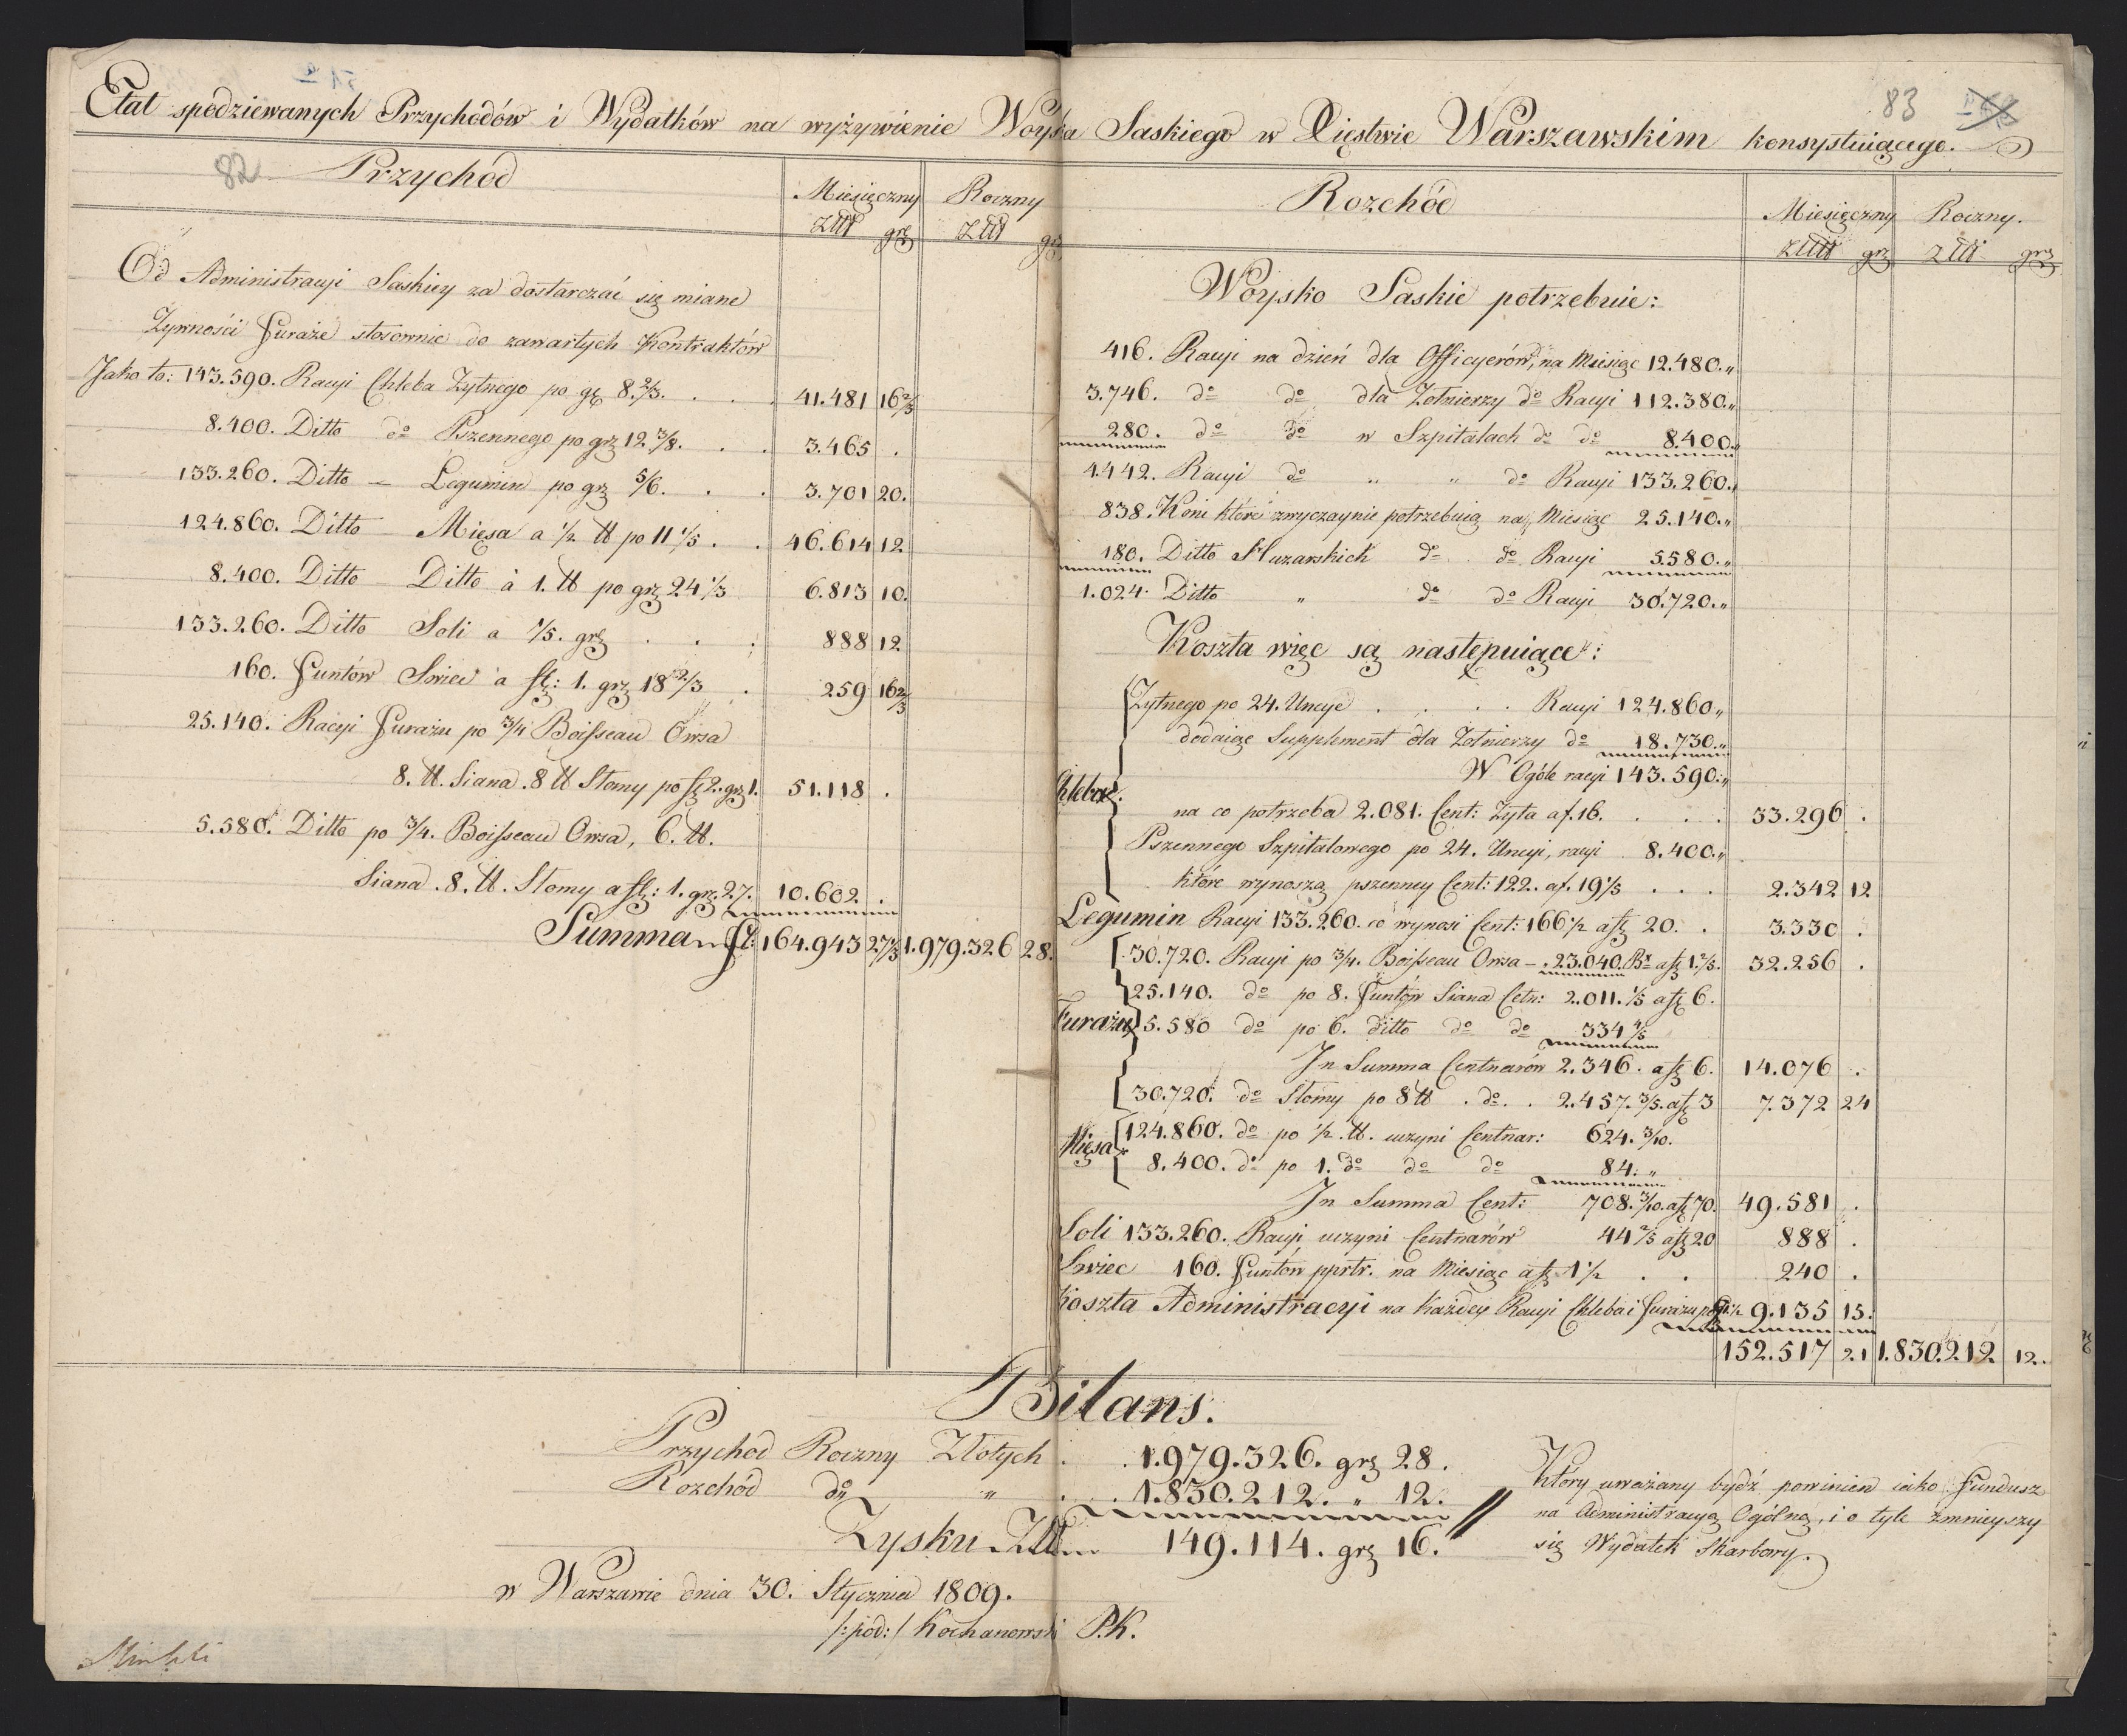 Etat spodziewanych Przychodów i Wydatków na wyżywienie Woyska Saskiego w Xięstwie Warszawskim konsystuiącego.
82
83
Przychód
Miesięczny Roczny
Złł grz Złł grz
Od Administracyi Saskiey za dostarczać się miane
Zywności Furaże stosownie do zawartych Kontraktów
Jako to: 143.590. Racyi Chleba Zytnego po gr 8.2/3. . . . 41.481 16 2/3
8.400. Ditto do Pszennego po grz 12 3/8. . . 3.465 .
133.260. Ditto – Legumin po grz 5/6. . . 3.701 20.
124.860. Ditto – Mięsa a 1/2 ℔ po 11 1/5 . . 46.614 12
8.400. Ditto – Ditto à 1. ℔ po grz 24 1/3 6.813 10.
133.260. Ditto Soli a 1/5. grz . . . 888 12
160. Funtów Swiec a fl: 1. grz 18 2/3 . 259 16 2/3
25.140. Racyi Furażu po 3/4 Boisseau Owsa
8. ℔. Siana. 8 ℔ Słomy po fl 2. grz 1. 51.118 .
5.580. Ditto po 3/4. Boisseau Owsa, 6. ℔.
Siana. 8. ℔. Słomy a fl: 1. grz. 27. 10.602 .
Summa fl: 164.943 27 1/3 1.979.326 28.
Rozchód
Miesięczny Roczny.
Złł grz Złł grz
Woysko Saskie potrzebuie:
416. Racyi na dzień dla Officyerów, na Miesiąc 12.480. "
3.746. do do dla Zołnierzy do Racyi 112.380. "
280. do do w Szpitalach do do 8.400. "
4.442. Racyi do " " do Racyi 133.260. "
838. Koni które zwyczaynie potrzebuią na Miesiąc 25.140. "
180. Ditto Huzarskich do do Racyi 5.580. "
1.024. Ditto " do do Racyi 30.720. "
Koszta więc są następuiące:
Zytnego po 24. Uncye . . . . Racyi 124.860 "
dodaiąc Supplement dla Zołnierzy do 18.730. "
W Ogóle racyi 143.590. "
Chleba
na co potrzeba 2.081. Cent: Zyta a f. 16. . . . 33.296 .
Pszennego Szpitalowego po 24. Uncyi, racyi 8.400. "
które wynoszą pszenney Cent: 122. a f. 19 1/5 . . . 2.342 12
Legumin Racyi 133.260. co wynosi Cent: 166 1/2 a fl 20. . 3.330 .
30.720. Racyi po 3/4. Boisseau Owsa – 23.040. Bx a fl 1. 2/5. 32.256 .
25.140. do po 8. Funtów Siana Cetn: 2.011. 1/5 a fl 6.
Furażu 5.580 do po 6. ditto do do 334 4/5
In Summa Centnarów 2.346. a fl 6. 14.076 .
30.720. do Słomy po 8 ℔ . do. . 2.457. 3/5. a fl 3 7.372 24
Mięsa 124.860. do po 1/2. ℔. uczyni Centnar: 624. 3/10.
8.400. do po 1. do do do 84. "
In Summa Cent: 708. 3/10. a fl 70. 49.581 .
Soli 133.260. Racyi uczyni Centnarów 44 2/5 a fl 20 888 .
Swiec 160. Funtów pprtr. na Miesiąc a fl 1 1/2 . . 240 .
Koszta Administracyi na każdey Racyi Chleba i Furażu po 9.135 15.
152.517 21 1.830.212 12.
Bilans.
Przychod Roczny Złotych . . 1.979.326. grz 28.
Rozchód do " . . 1.830.212. " 12.
Zysku Złł 149.114. grz 16. //
Który uważany bydź powinien iako Fundusz
na Administracyą Ogólną, i o tyle zmnieyszy
się Wydatek Skarbowy.
w Warszawie dnia 30. Stycznia 1809.
/:pod:/ Kochanowski P.K.